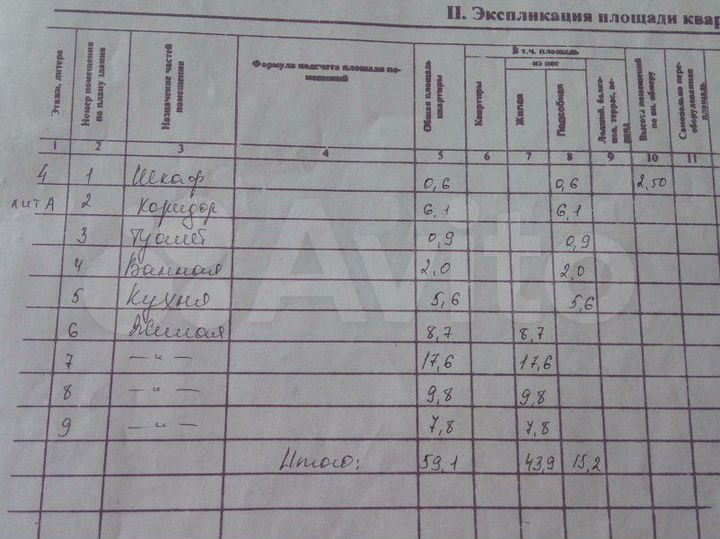 II. Экспликация площади квар
Этажи, литера
Номер помещения по плану здания
Назначение частей помещения
Формула подсчета площади помещений
Общая площадь квартиры
В т.ч. площадь
из нее
Квартиры
Жилая
Подсобная
Лоджий, балконов, террас,
Высота помещений по вн. обмеру
Самовольно переоборудованная площадь
1 2 3 4 5 6 7 8 9 10 11
4 1 Шкаф 0,6 0,6 2,50
лит А 2 Коридор 6,1 6,1
3 Туалет 0,9 0,9
4 Ванная 2,0 2,0
5 Кухня 5,6 5,6
6 Жилая 8,7 8,7
7 — " — 17,6 17,6
8 — " — 9,8 9,8
9 — " — 7,8 7,8
Итого: 59,1 43,9 15,2
Avito